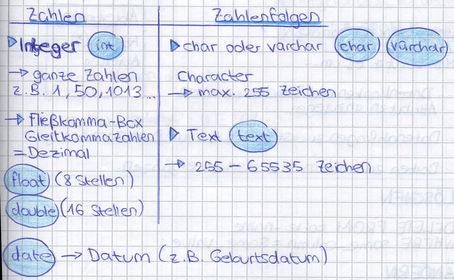 Zahlen
▷ Integer int
→ ganze Zahlen
z.B. 1, 50, 1013...
→ Fließkomma-Box
Gleitkommazahlen
= Dezimal
float (8 Stellen)
double (16 Stellen)
date → Datum (z.B. Geburtsdatum)
Zahlenfolgen
▷ char oder varchar char varchar
Character
→ max. 255 Zeichen
▷ Text text
→ 255 - 65535 Zeichen